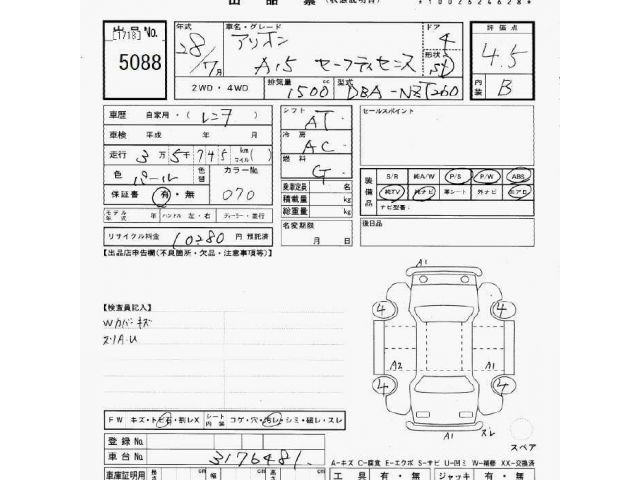 出品票 (状態説明書)
*1002624628*
出品No. [1718] 5088
年式 28/7月
車名・グレード アリオン A15 セーフティセンス
ドア 4
形状 SD
評価点 4.5
内装 B
2WD・4WD
排気量 1500 cc
型式 DBA-NZT260
車歴 自家用・(レンタ)
車検 平成 年 月
走行 3万5千745 km マイル( )
色 パール
カラーNo. 070
保証書 有・無
モデル年式 年 ハンドル 左・右 ディーラー・並行
リサイクル料金 10280 円 預託済
シフト AT
冷房 AC
燃料 G
乗車定員 名
積載量 kg
総重量 kg
名変期限 月 日
セールスポイント
装備品 S/R 純A/W P/S P/W ABS
純TV 純ナビ 革シート 外ナビ エアロ
ナビ型番:
後日品
【出品店申告欄(不良箇所・欠品・注意事項等)】
【検査員記入】
Wカバーキズ
スリA-U
A1
4 4
A2 A1
4 4
A1 スレ
スペア
FW キズ・トビ石・割レX
シート内装 コゲ・穴・汚レ・シミ・破レ・スレ
登録No.
車台No. 3176481
A-キズ C-腐食 E-エクボ S-サビ U-凹ミ W-補修 XX-交換済
車庫証明用 長さ cm 幅 cm 高さ cm
工具 有・無 ジャッキ 有・無